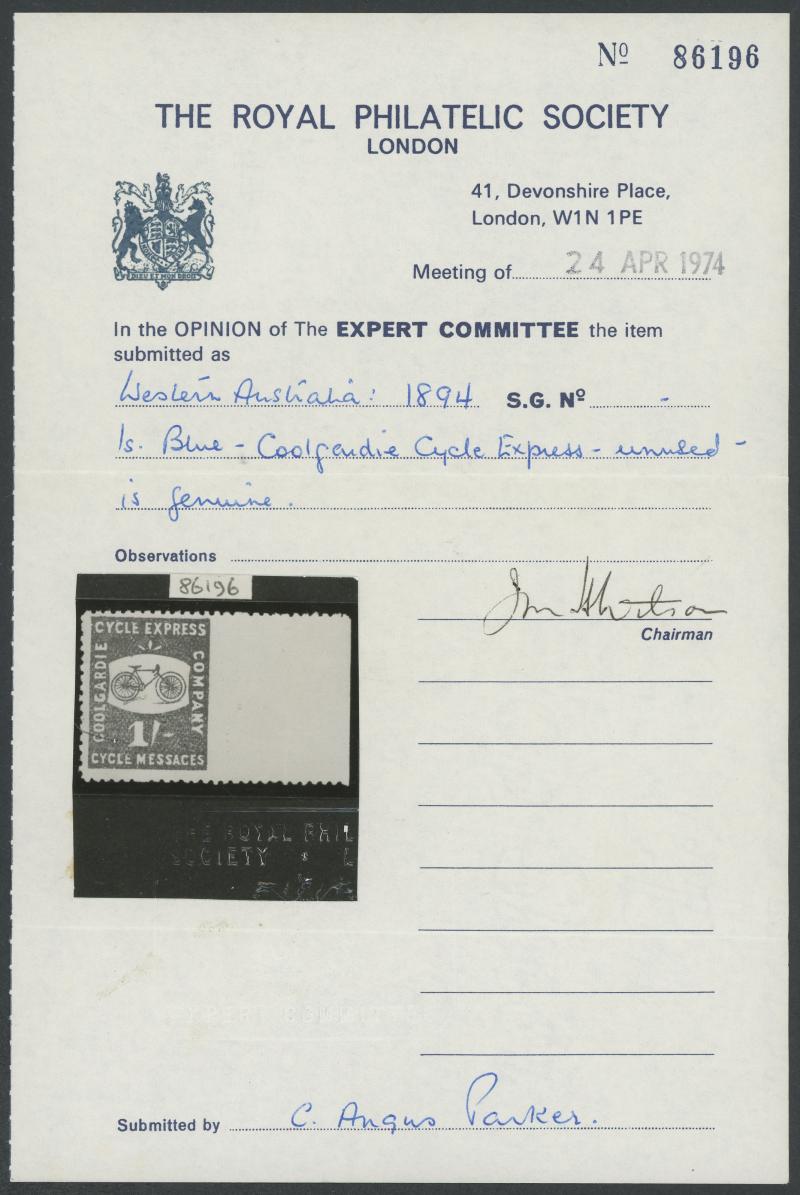 Nº 86196
THE ROYAL PHILATELIC SOCIETY
LONDON
41, Devonshire Place,
London, W1N 1PE
DIEU ET MON DROIT
Meeting of 24 APR 1974
In the OPINION of The EXPERT COMMITTEE the item
submitted as
Western Australia: 1894 S.G. Nº -
1s. Blue - Coolgardie Cycle Express - unused -
is genuine.
Observations
86196
CYCLE EXPRESS
COOLGARDIE
COMPANY
1/-
CYCLE MESSAGES
THE ROYAL PHIL
SOCIETY L
Chairman
EXPERT COMMITTEE
Submitted by C. Angus Parker.